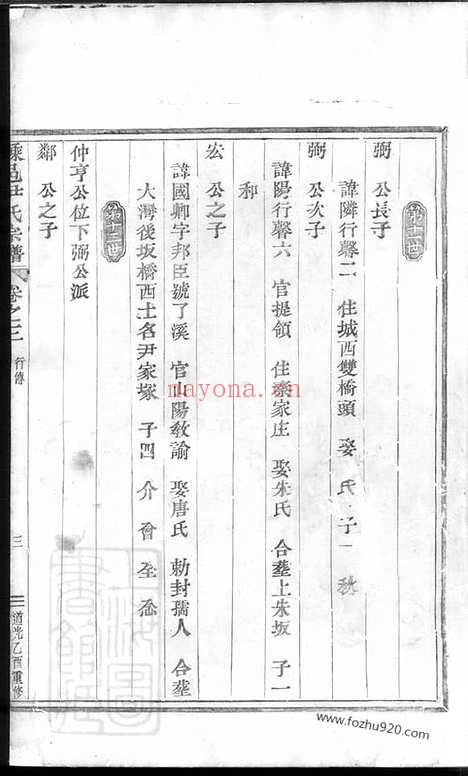 第十一世
弼 公長子
諱隣行馨二 住城西雙橋頭 娶 氏 子一 秋
弼 公次子
諱陽行馨六 官提領 住齋家庄 娶朱氏 合塟上朱坂 子一
和
宏 公之子
諱國卿字邦臣號了溪 官山陽教諭 娶唐氏 勅封孺人 合塟
大灣後坂橋西土名尹家塚 子四 介 會 全 忩
第十二世
仲亨公位下弼公派
鄰 公之子
嵊邑尹氏宗譜 卷之三 行傳 三 道光乙酉重修
上海圖書館藏
nayona.cn
www.fozhu920.com